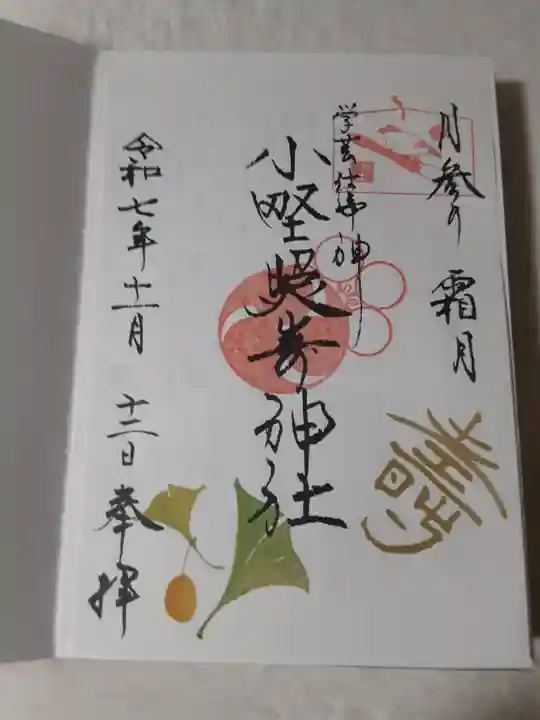 月参り 霜月
学芸仕事神
小野照崎神社
令和七年十一月十二日奉拝